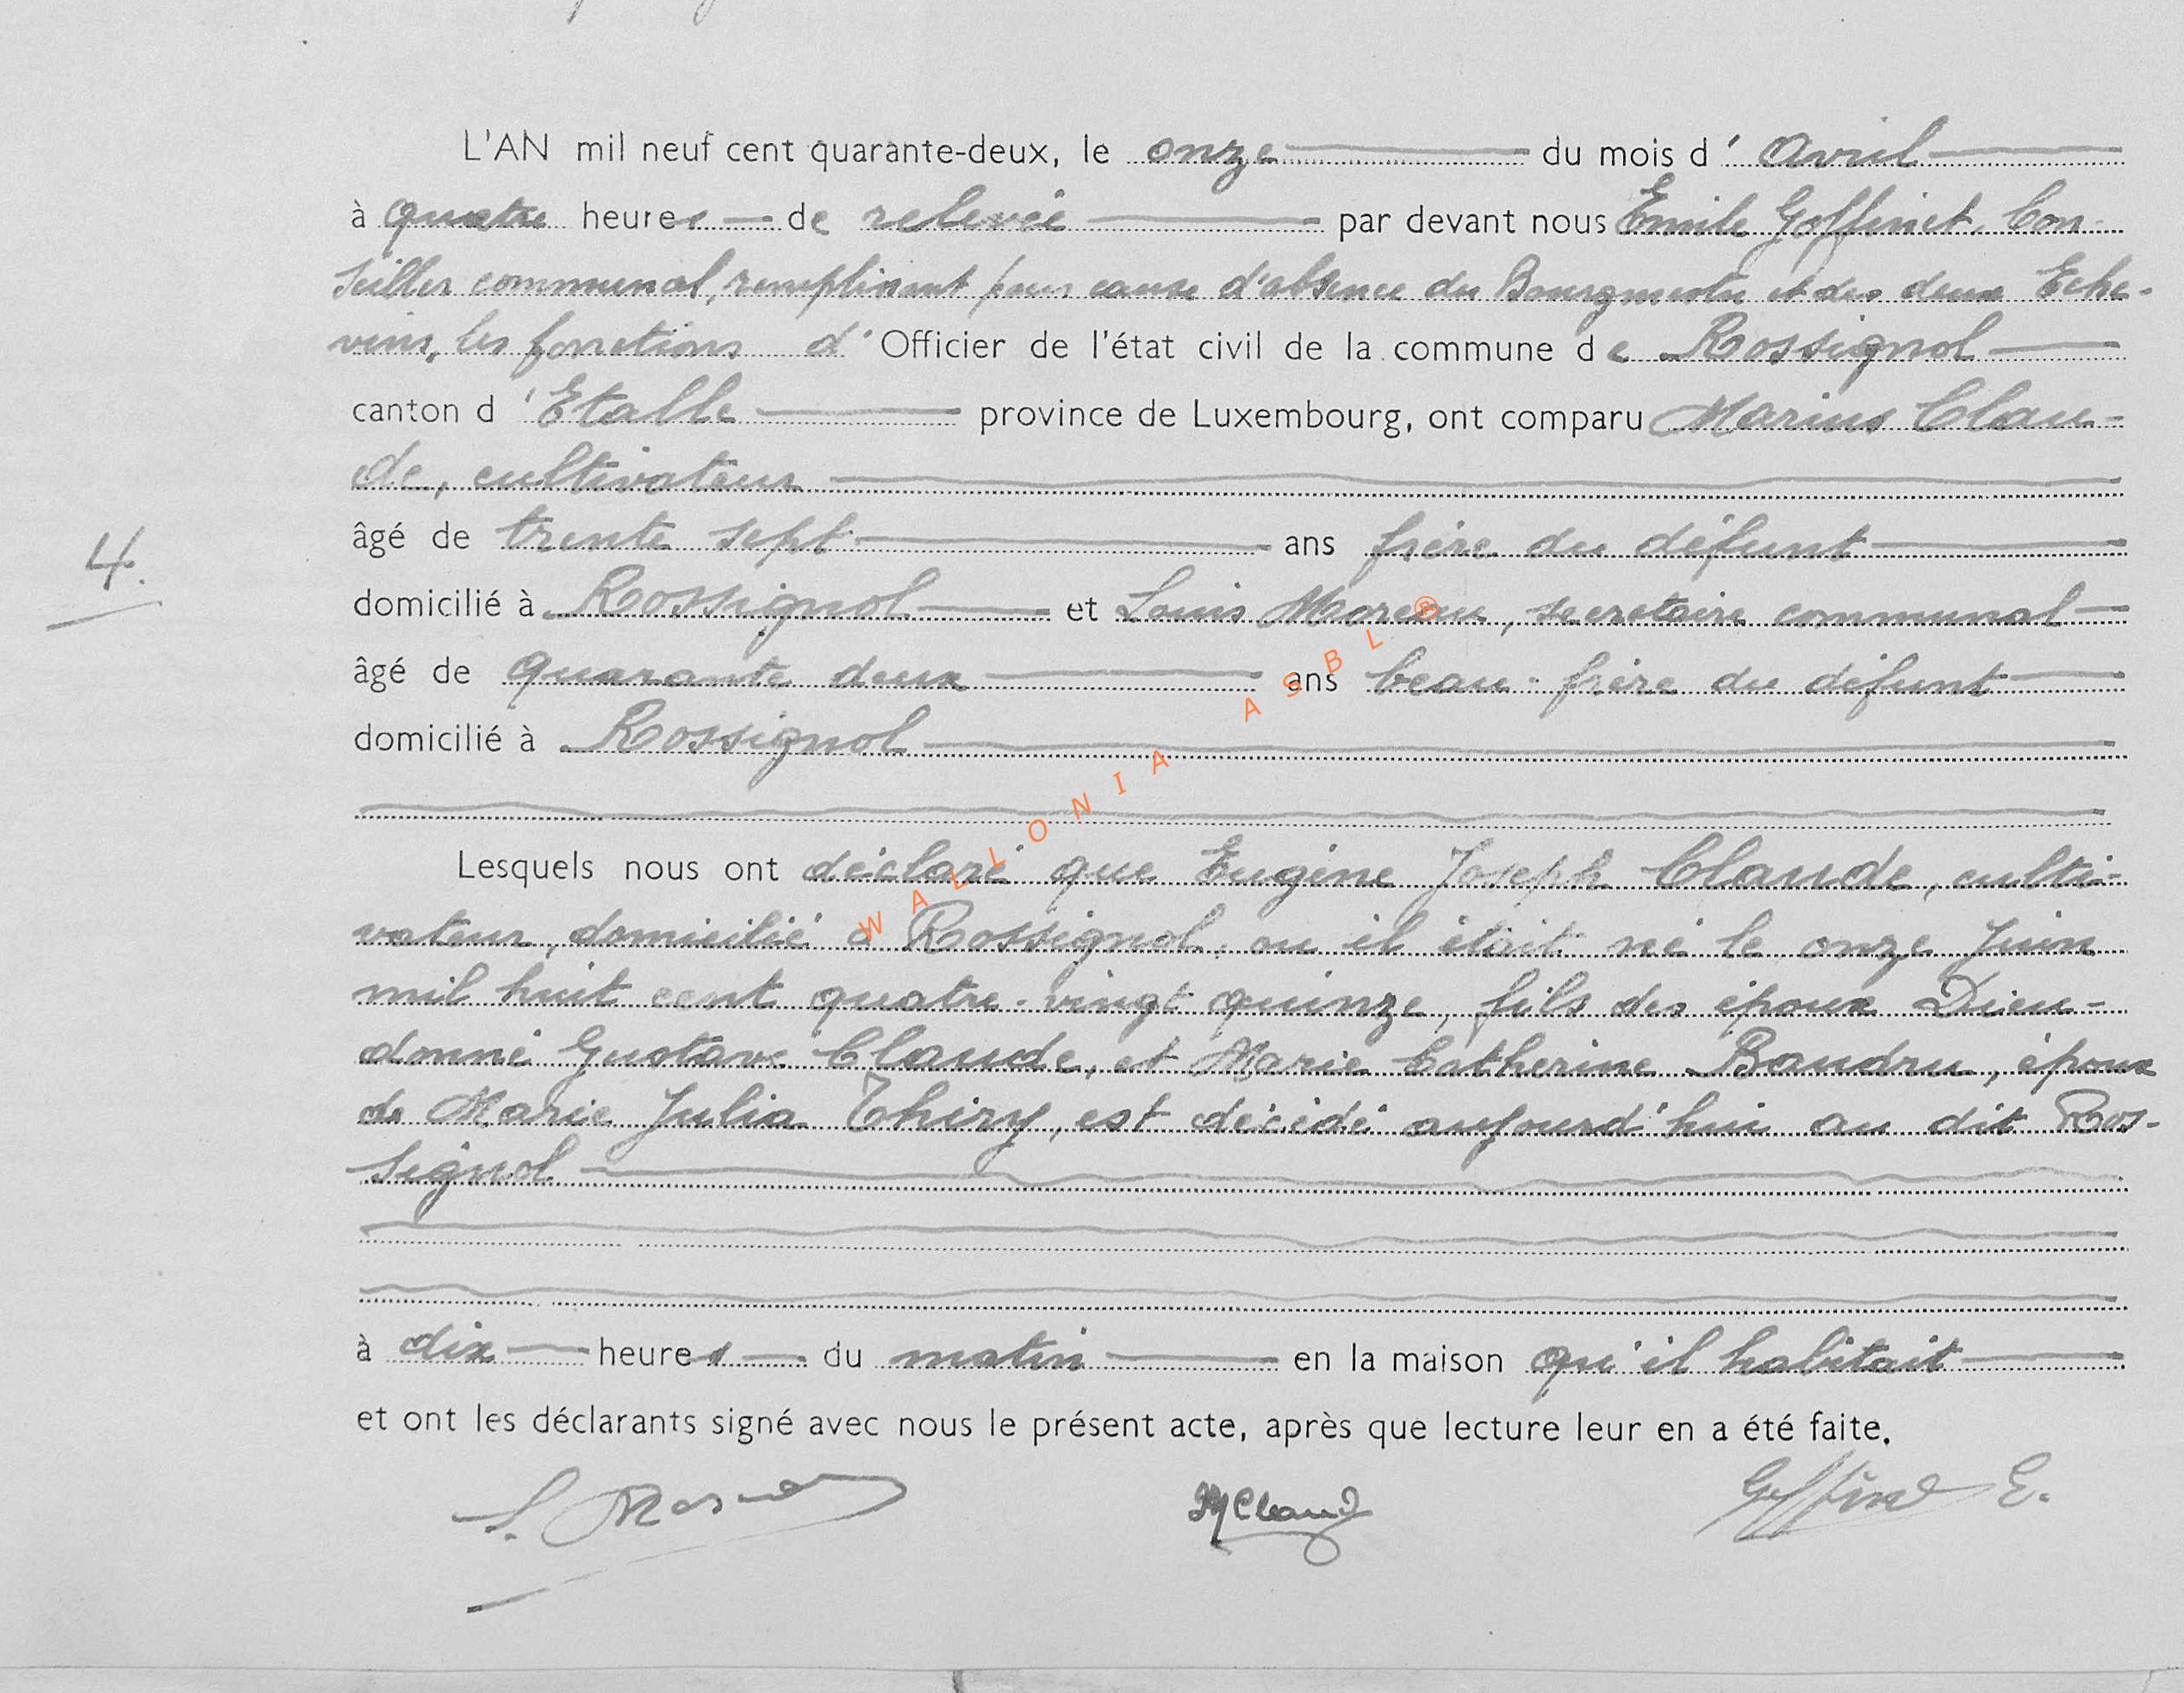 L'AN mil neuf cent quarante-deux, le onze du mois d' Avril
à quatre heures de relevée par devant nous Emile Goffinet, Con-
seiller communal, remplissant pour cause d'absence du Bourgmestre et des deux Eche-
vins, les fonctions d'Officier de l'état civil de la commune de Rossignol
canton d'Etalle province de Luxembourg, ont comparu Marius Clau-
de, cultivateur
âgé de trente sept ans frère du défunt
4.
domicilié à Rossignol et Louis Moreau, secrétaire communal
âgé de quarante deux ans beau-frère du défunt
domicilié à Rossignol
Lesquels nous ont déclaré que Eugène Joseph Claude, culti-
vateur, domicilié à Rossignol, ou il était né le onze Juin
mil huit cent quatre-vingt quinze, fils des époux Dieu-
donné Gustave Claude, et Marie Catherine Baudru, époux
de Marie Julia Thiry, est décédé aujourd'hui au dit Ros-
signol
à dix heures du matin en la maison qu'il habitait
et ont les déclarants signé avec nous le présent acte, après que lecture leur en a été faite.
L. Moreau M Claude Goffinet E.
WALLONIA ASBL ®